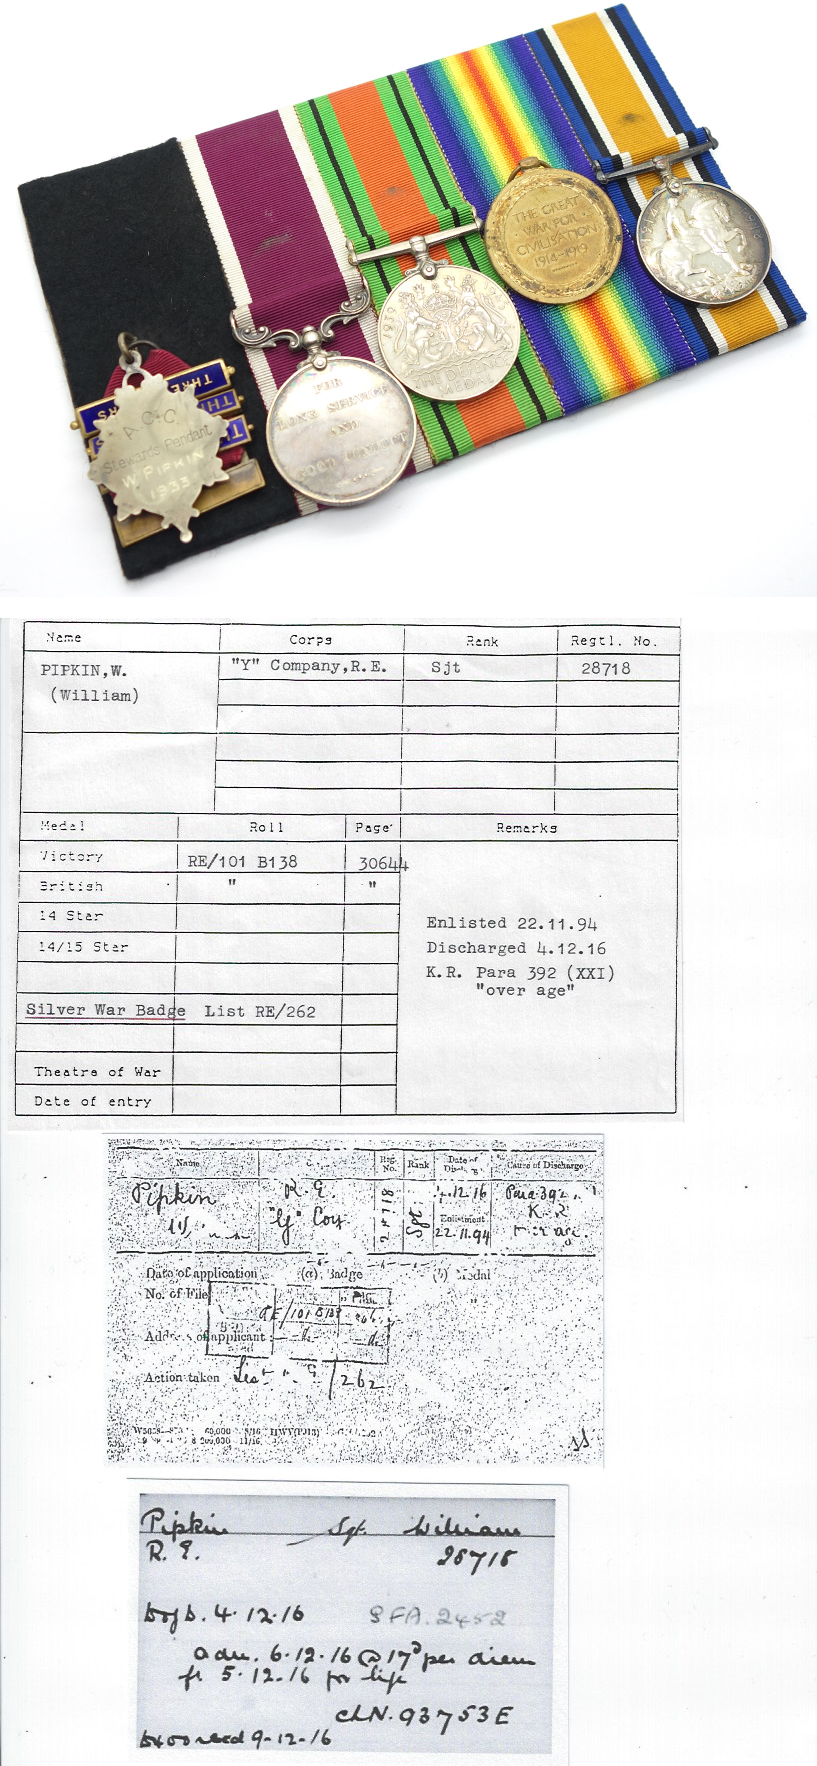 THREE
A.C.C.
Stewards Pendant
W. PIPKIN
1933
FOR
LONG SERVICE
AND
GOOD CONDUCT
THE DEFENCE
MEDAL
THE GREAT
WAR FOR
CIVILISATION
1914-1919
1914
Name Corps Rank Regtl. No.
PIPKIN,W. "Y" Company,R.E. Sjt 28718
(William)
Medal Roll Page Remarks
Victory RE/101 B138 30644
British " "
14 Star
14/15 Star
Enlisted 22.11.94
Discharged 4.12.16
K.R. Para 392 (XXI)
"over age"
Silver War Badge List RE/262
Theatre of War
Date of entry
Name Reg. No. Rank Date of Cause of Discharge
Pipkin R.E. 28718 Sgt. 4.12.16 Para 392
"Y" Coy Enlistment K.R
22.11.94
Date of application (a) Badge (b) Medal
No. of File
RE/101 B138
Address of applicant
Action taken List /262
60,000
200,000 11/16
Pipkin Sgt. William
R.E. 28718
4.12.16 SFA.2452
adm. 6.12.16 @ 17d per diem
fr 5.12.16 for life
ChN. 93753E
9-12-16